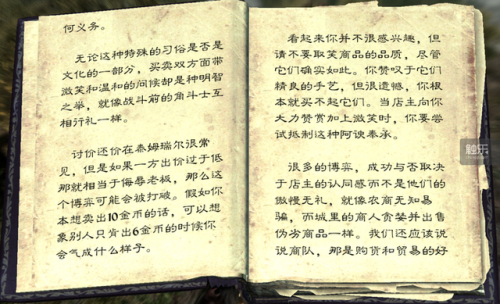 何义务。
无论这种特殊的习俗是否是
文化的一部分，买卖双方面带
微笑和温和的问候却是种明智
之举，就像战斗前的角斗士互
相行礼一样。
讨价还价在泰姆瑞尔很常
见，但是如果一方出价过于低
那就相当于侮辱老板，那么这
个博弈可能会被打破。假如你
本想卖出10金币的话，可以想
象别人只肯出6金币的时候你
会气成什么样子。
看起来你并不很感兴趣，但
请不要取笑商品的品质，尽管
它们确实如此。你赞叹于它们
精良的手艺，但很遗憾，你根
本就买不起它们。当店主向你
大力赞赏加上微笑时，你要尝
试抵制这种阿谀奉承。
很多的博弈，成功与否取决
于店主的认同感而不是他们的
傲慢无礼，就像农商无知易
骗，而城里的商人贪婪并出售
伪劣商品一样。我们还应该说
说商队，那是购货和贸易的好
触乐